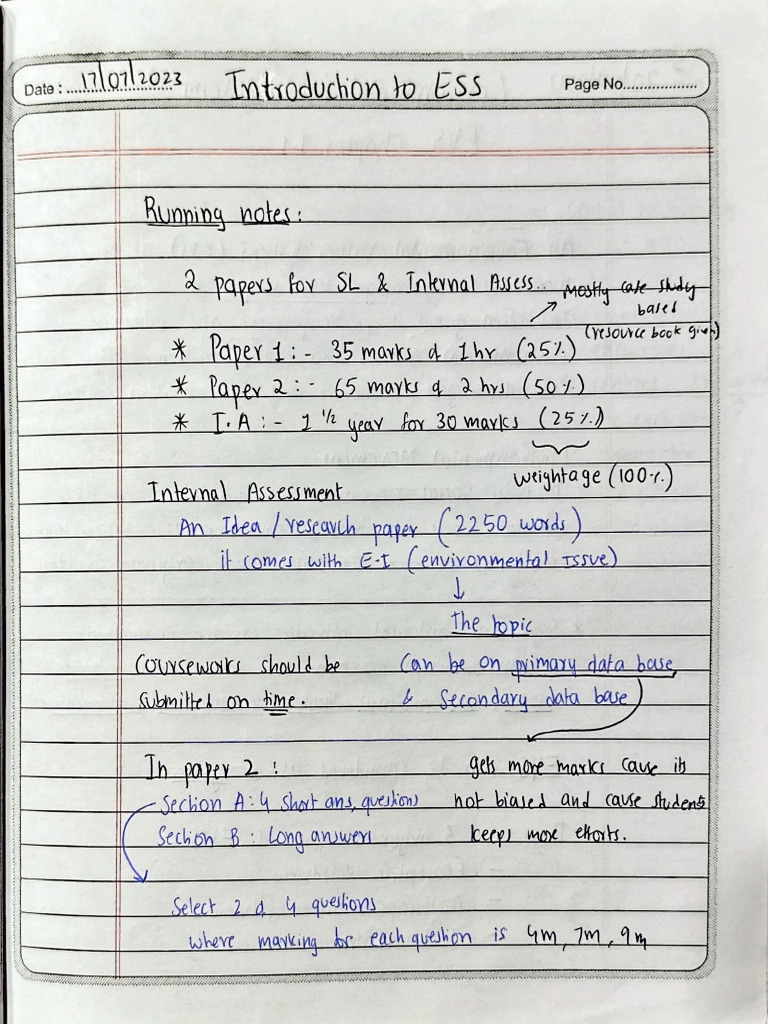 Date : 17/07/2023 Introduction to ESS Page No.
Running notes:
2 papers for SL & Internal Assess..
Mostly case study
based
(resource book given)
* Paper 1 :- 35 marks d 1 hr (25%)
* Paper 2 :- 65 marks d 2 hrs (50%)
* I.A :- 1 1/2 year for 30 marks (25%)
weightage (100%)
Internal Assessment
An Idea / research paper (2250 words)
it comes with E-I (environmental Issue)
↓
The topic
Courseworks should be
submitted on time.
Can be on primary data base,
& Secondary data base
gets more marks cause its
not biased and cause students
keeps more efforts.
In paper 2 :
Section A : 4 short ans, questions
Section B : Long answers
Select 2 d 4 questions
where marking for each question is 4m, 7m, 9m